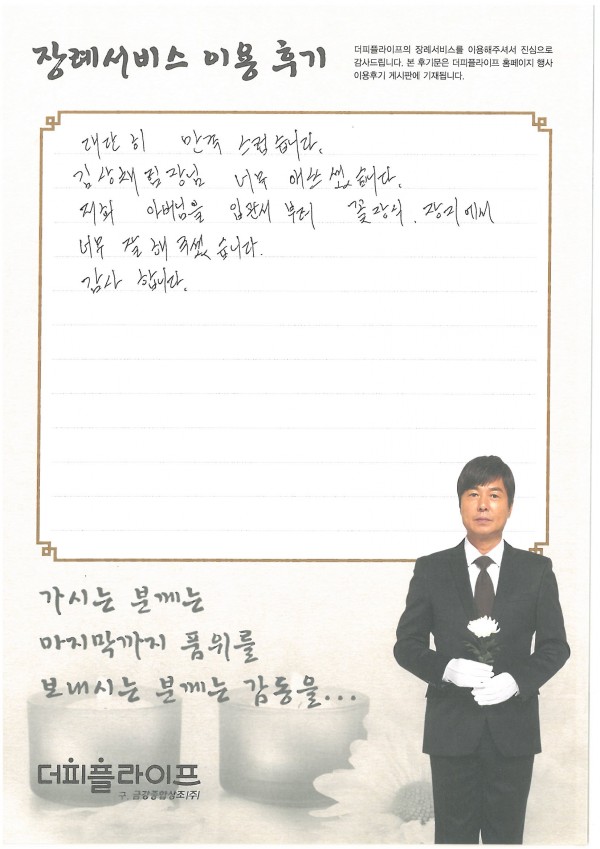 장례서비스 이용 후기
더피플라이프의 장례서비스를 이용해주셔서 진심으로
감사드립니다. 본 후기문은 더피플라이프 홈페이지 행사
이용후기 게시판에 기재됩니다.
대단히 만족 스럽습니다.
김상재팀장님 너무 애쓰셨습니다.
저희 아버님을 입관서부터 꽃장식. 장지에서
너무 잘해주셨습니다.
감사합니다.
가시는 분께는
마지막까지 품위를
보내시는 분께는 감동을...
더피플라이프
구. 금강종합상조(주)